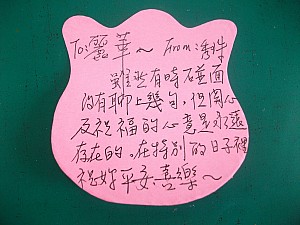 To:麗華~ From:透瑋
雖然有時碰面
沒有聊上幾句,但關心
及祝福的心意是永遠
存在的,在特別的日子裡
祝妳平安、喜樂~